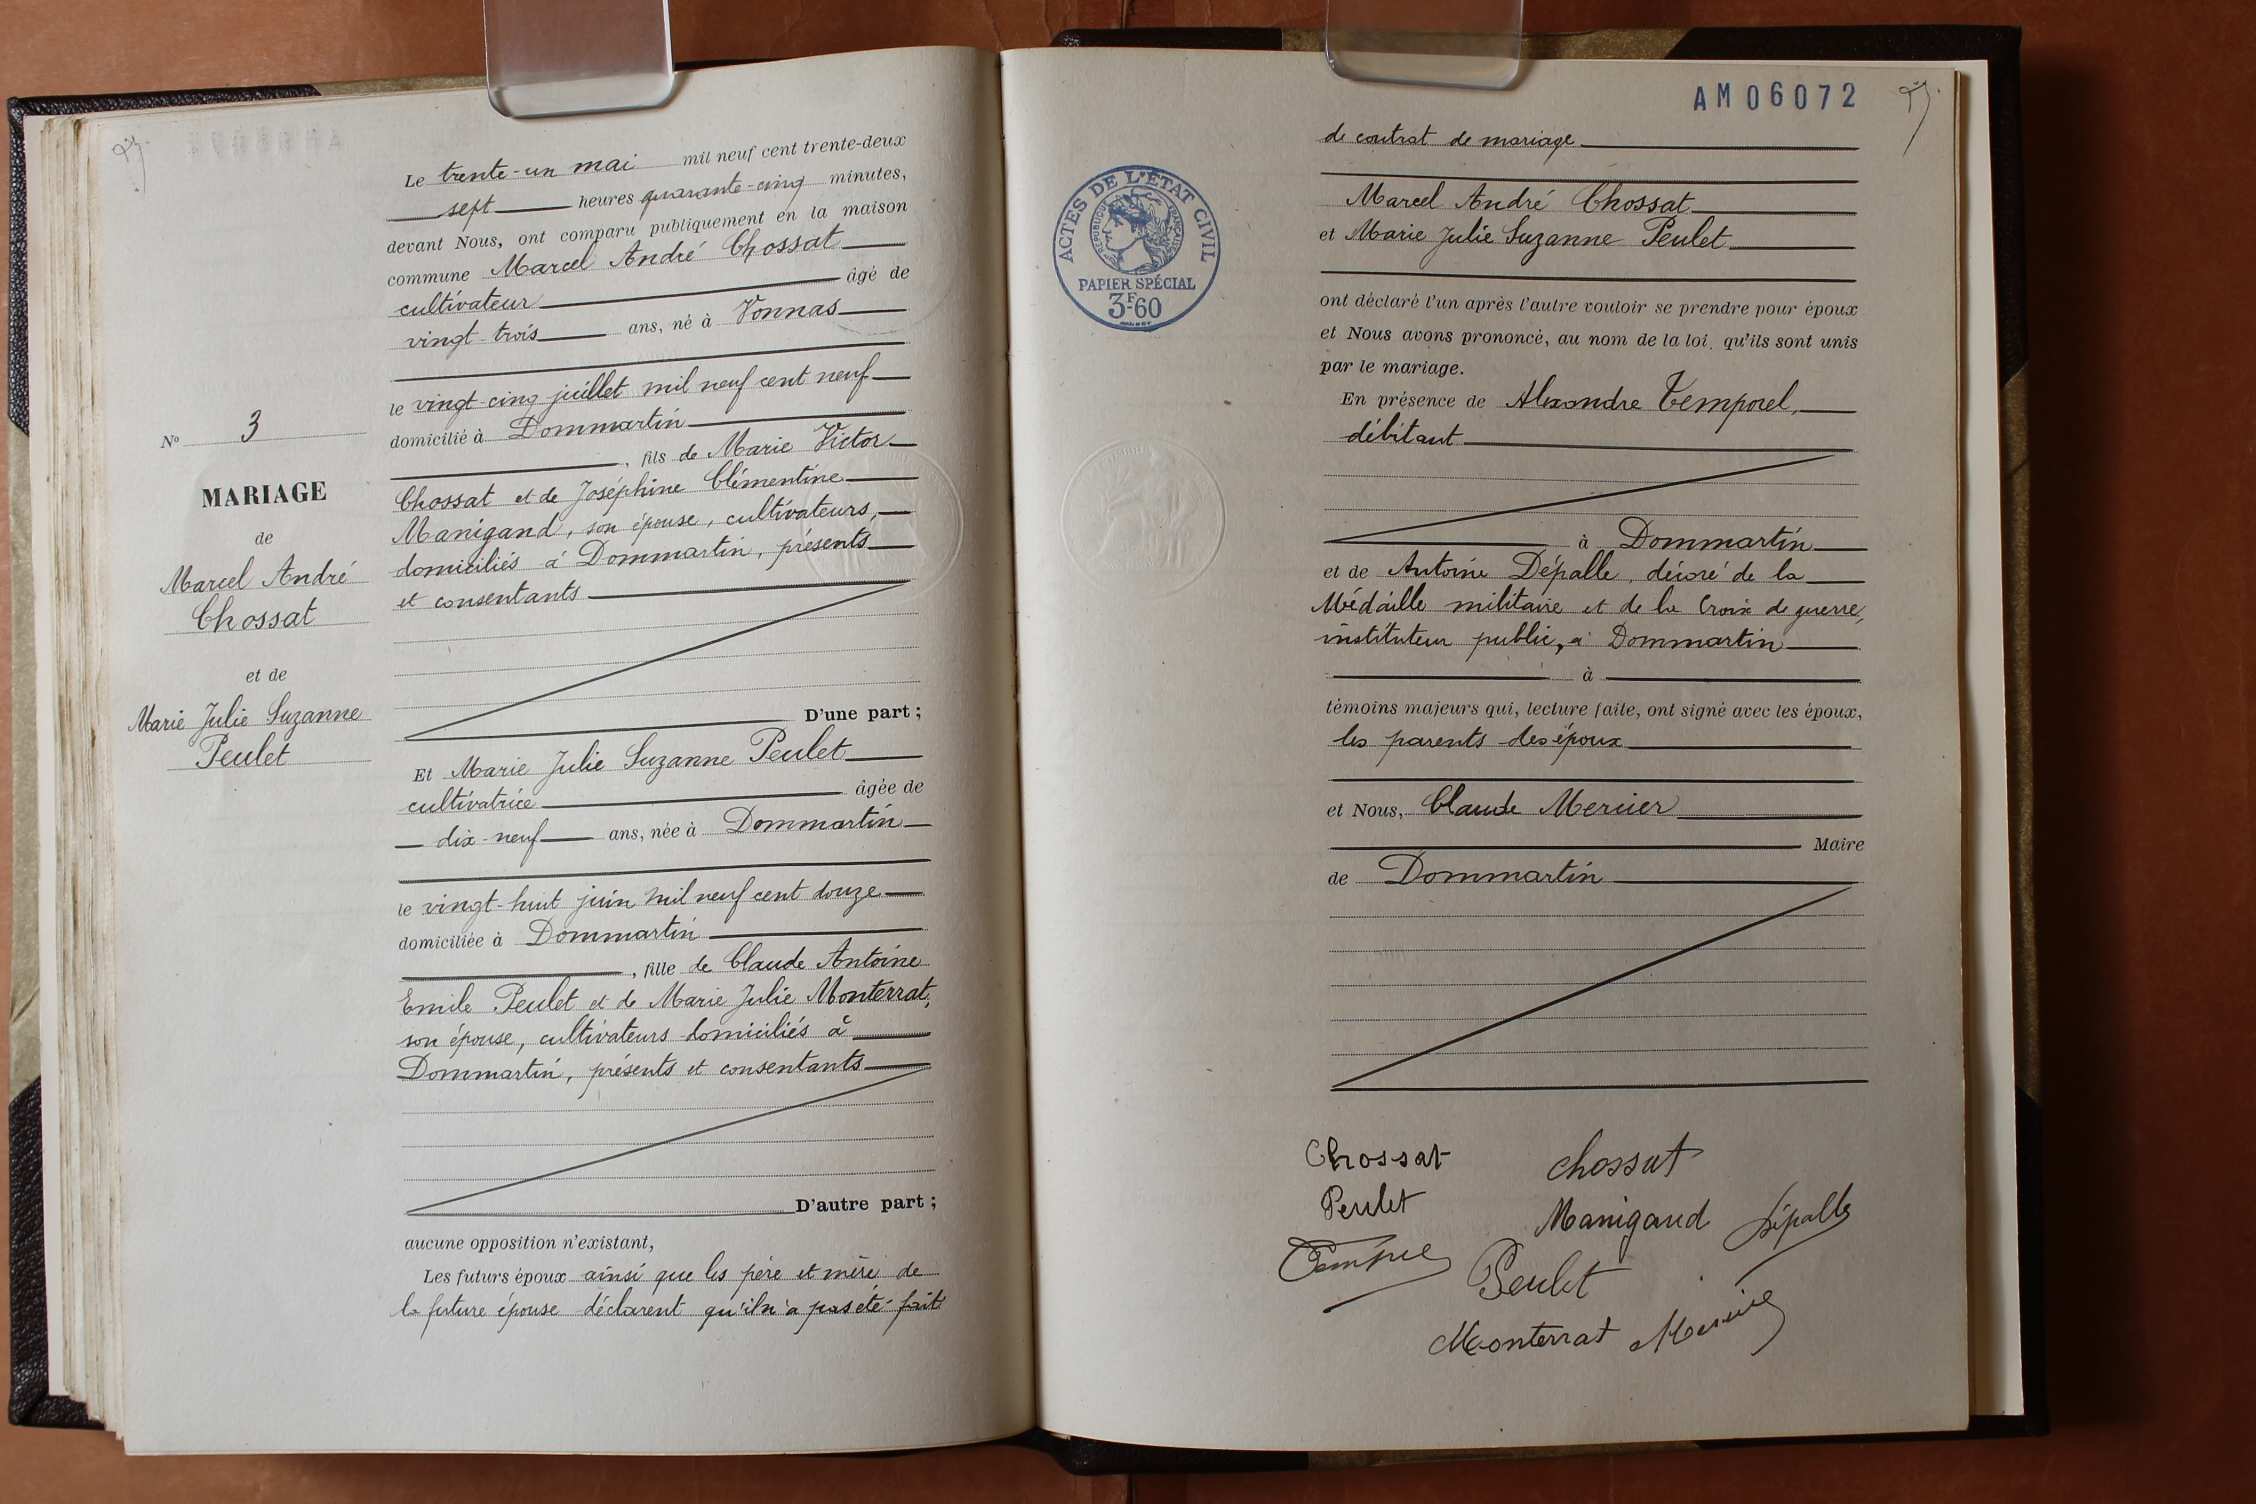 Le trente-un mai mil neuf cent trente-deux
sept heures quarante-cinq minutes,
devant Nous, ont comparu publiquement en la maison
commune Marcel André Chossat
cultivateur âgé de
vingt-trois ans, né à Vonnas
le vingt-cinq juillet mil neuf cent neuf
domicilié à Dommartin
, fils de Marie Victor
Chossat et de Joséphine Clémentine
Manigand, son épouse, cultivateurs,
domiciliés à Dommartin, présents
et consentants
D'une part ;
No 3
MARIAGE
de
Marcel André
Chossat
et de
Marie Julie Suzanne
Peulet
Et Marie Julie Suzanne Peulet
cultivatrice âgée de
dix-neuf ans, née à Dommartin
le vingt-huit juin mil neuf cent douze
domiciliée à Dommartin
, fille de Claude Antoine
Emile Peulet et de Marie Julie Monterrat,
son épouse, cultivateurs domiciliés à
Dommartin, présents et consentants
D'autre part ;
aucune opposition n'existant,
Les futurs époux ainsi que les père et mère de
la future épouse déclarent qu'il n'a pas été fait
AM06072
de contrat de mariage
ACTES DE L'ÉTAT CIVIL
RÉPUBLIQUE FRANÇAISE
PAPIER SPÉCIAL
3F.60
Marcel André Chossat
et Marie Julie Suzanne Peulet
ont déclaré l'un après l'autre vouloir se prendre pour époux
et Nous avons prononcé, au nom de la loi, qu'ils sont unis
par le mariage.
En présence de Alexandre Temporel,
débitant
à Dommartin
et de Antoine Dépalle, décoré de la
Médaille militaire et de la Croix de guerre,
instituteur public, à Dommartin
à
témoins majeurs qui, lecture faite, ont signé avec les époux,
les parents des époux
et Nous, Claude Mercier
Maire
de Dommartin
Chossat chossat
Peulet Manigand Dépalle
Peulet
Monterrat Mercier